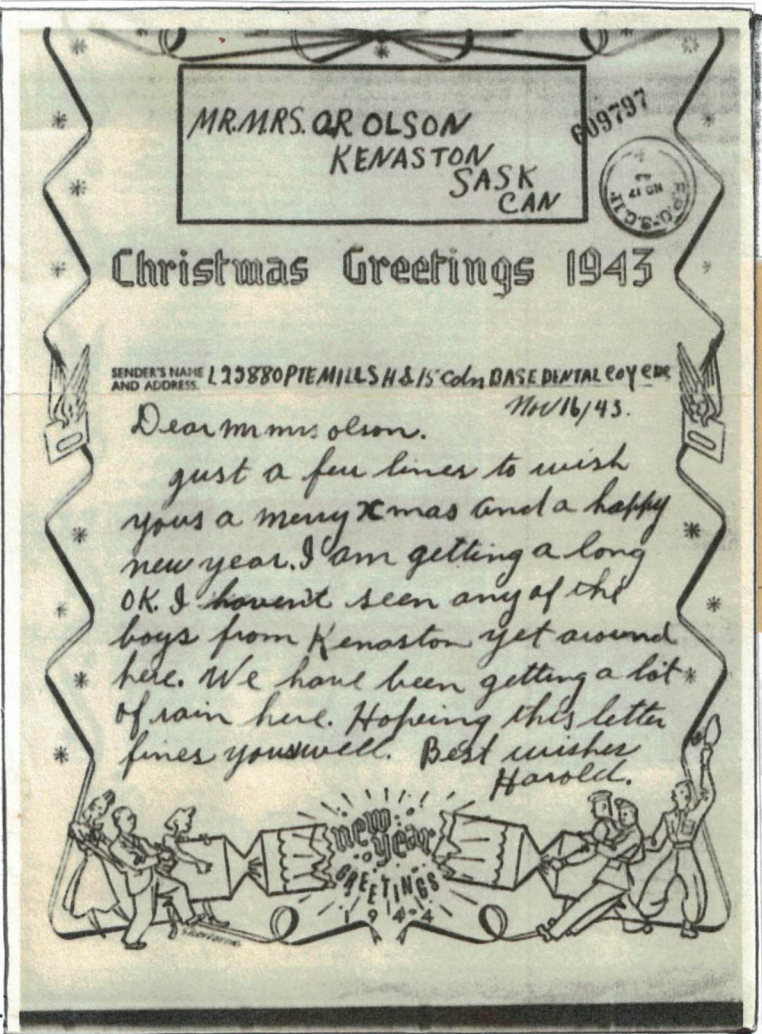 MR.MRS. O.R OLSON
KENASTON
SASK
CAN
609797
NO 17
43
Christmas Greetings 1943
SENDER'S NAME
AND ADDRESS.
L25880 PTE MILLS H S 15 Cdn BASE DENTAL COY
Nov 16/43.
Dear Mr mrs olson.
just a few lines to wish
yous a merry Xmas and a happy
new year. I am getting a long
OK. I haven't seen any of the
boys from Kenaston yet around
here. We have been getting a lot
of rain here. Hopeing this letter
fines youswell. Best wishes
Harold.
new
year
GREETINGS
1944